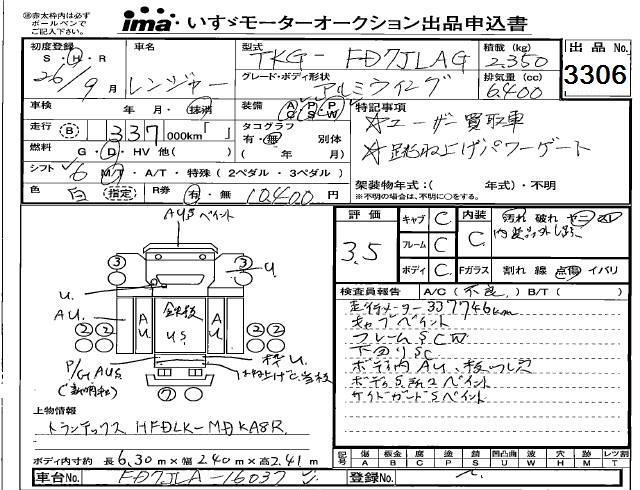 ※赤太枠内は必ず
ボールペンで
ご記入ください。
ima いすゞモーターオークション出品申込書
初度登録 S・H・R 26/9月
車名 レンジャー
型式 TKG-FD7JLAG
積載(kg) 2.350
出品No. 3306
グレード・ボディ形状 アルミウイング
排気量(cc) 6.400
車検 年 月・抹消
装備 AC PS PW
特記事項
☆ユーザー買取車
走行 B 337000km「 」
タコグラフ 有・無 別体
( 年 月)
☆跳ね上げパワーゲート
燃料 G・D・HV 他( )
シフト 6 MT・A/T・特殊(2ペダル・3ペダル)
架装物年式:( 年式)・不明
※不明の場合は、不明に○をする。
色 白 指定 R券 有・無 10,400円
AUSペイント
評価 3.5
キャブ C
フレーム C
ボディ C
内装 C
汚れ 破れ ヤニ
Fガラス 割れ 線 点傷 イバリ
検査員報告 A/C(不良)B/T( )
走行メーター337746km
キャブペイント
フレームSCW
下回りSC
ボデー内AU
サイドガードSペイント
3 3 U
U.
AU. AU 鉄板 US AU
2 2 2 2
P/G AUS
7
上物情報
トランテックス HFDLK-MDKA8R
ボディ内寸約 長6.30m×幅2.40m×高2.41m
記号 傷A 板金B 腐C 塗P 錆S 凹U 凹凸曲W 欠 穴H 跡M 歩 レツ割T
車台No. FD7JLA-16037
登録No.